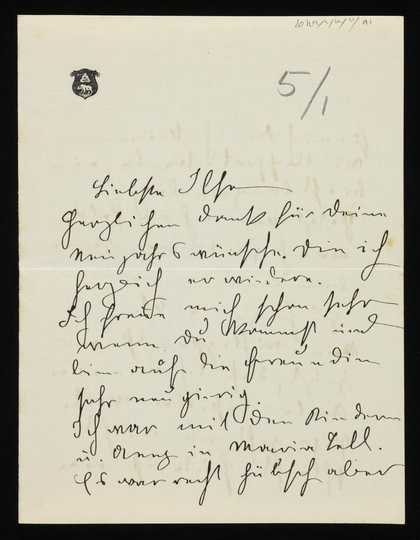 5/1
Liebste Ilse
Herzlichen Dank für Deine
Neujahrswünsche. Die ich
herzlich erwiedere.
Ich freue mich schon sehr
wenn Du kommst und
bin auf die Freundin
sehr neugierig.
Ich war mit den Kindern
u. in Maria Zell.
Es war recht hübsch aber